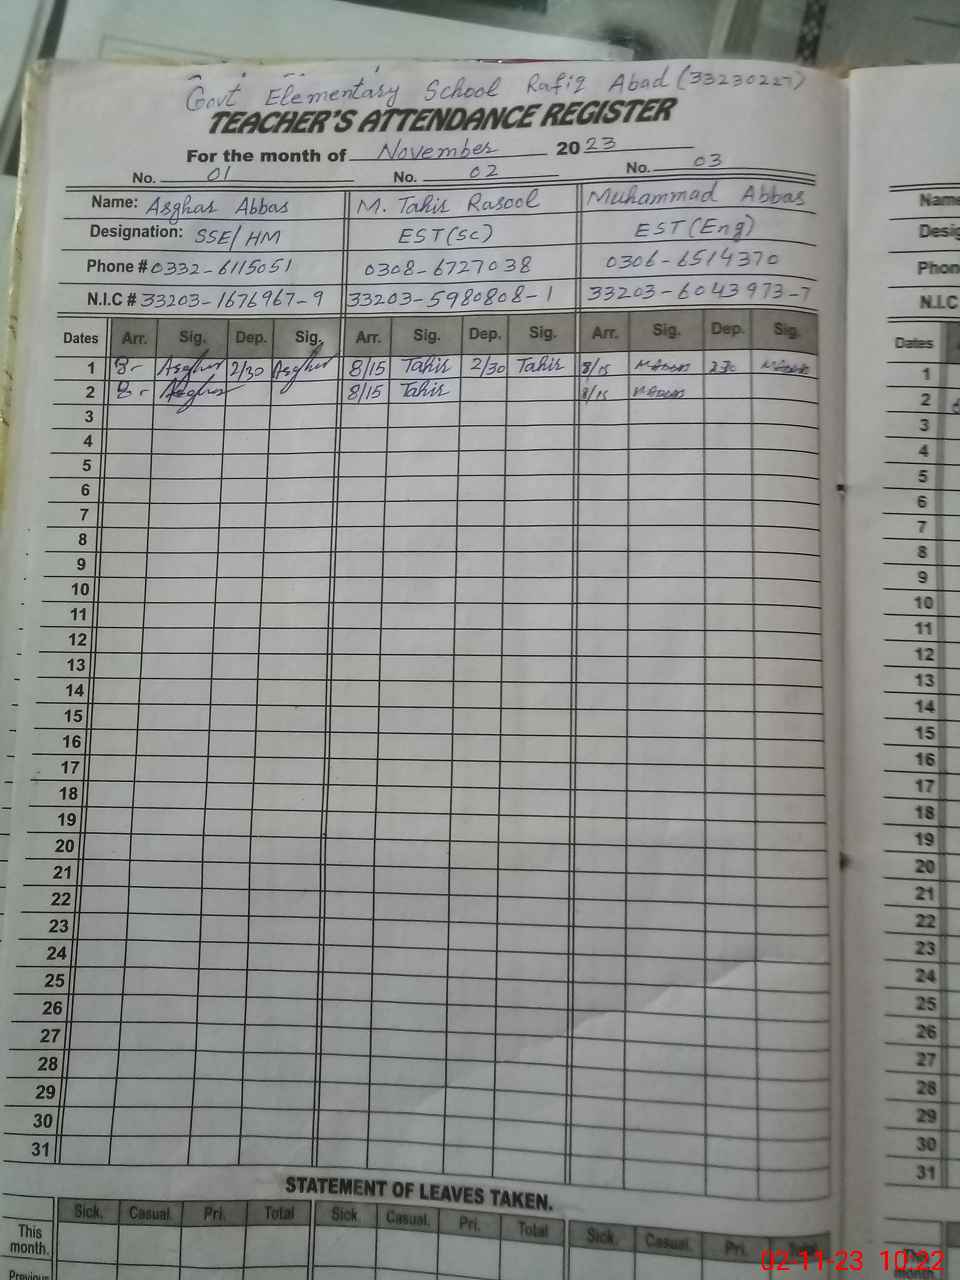 Govt Elementary School Rafiq Abad (33230227)
TEACHER'S ATTENDANCE REGISTER
For the month of November 2023
No. 01 No. 02 No. 03
Name: Asghar Abbas M. Tahir Rasool Muhammad Abbas
Designation: SSE/HM EST(Sc) EST(Eng)
Phone # 0332-6115051 0308-6727038 0306-6514370
N.I.C # 33203-1676967-9 33203-5980808-1 33203-6043973-7
Dates Arr. Sig. Dep. Sig. Arr. Sig. Dep. Sig. Arr. Sig. Dep. Sig.
1 8- Asghar 2/30 Asghar 8/15 Tahir 2/30 Tahir 8/15 M Abbas 230 M Abbas
2 8- Asghar 8/15 Tahir 8/15 M Abbas
3
4
5
6
7
8
9
10
11
12
13
14
15
16
17
18
19
20
21
22
23
24
25
26
27
28
29
30
31
STATEMENT OF LEAVES TAKEN.
Sick. Casual. Pri. Total Sick. Casual. Pri. Total Sick. Casual. Pri. Total
This
month.
Previous
Name
Desig
Phon
N.I.C
Dates
1
2
3
4
5
6
7
8
9
10
11
12
13
14
15
16
17
18
19
20
21
22
23
24
25
26
27
28
29
30
31
This
month
02-11-23 10:22